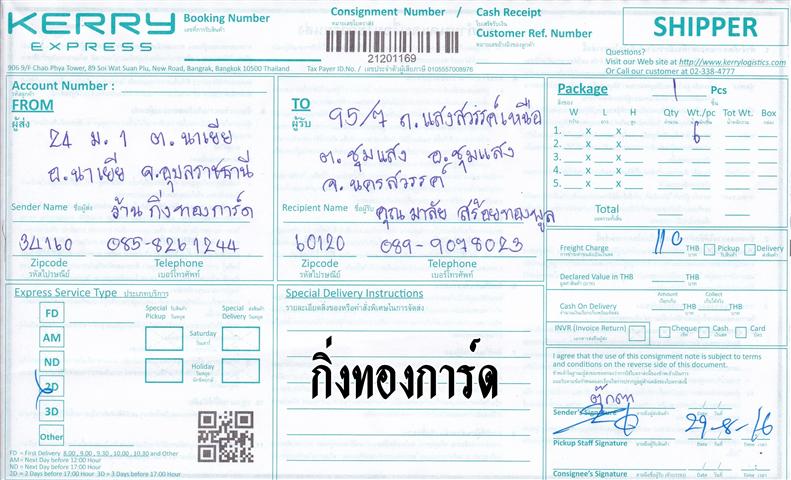 KERRY
EXPRESS
Booking Number
เลขที่การรับสินค้า
Consignment Number /
หมายเลขใบตราส่ง
21201169
Cash Receipt
ใบเสร็จรับเงิน
Customer Ref. Number
หมายเลขอ้างอิงของลูกค้า
SHIPPER
Questions?
Visit our Web site at http://www.kerrylogistics.com
Or Call our customer at 02-338-4777
906 9/F Chao Phya Tower, 89 Soi Wat Suan Plu, New Road, Bangrak, Bangkok 10500 Thailand
Tax Payer ID.No. / เลขประจำตัวผู้เสียภาษี 0105557008976
Account Number :
รหัสลูกค้า
FROM
ผู้ส่ง
24 ม. 1 ต. นาเยีย
อ. นาเยีย จ. อุบลราชธานี
Sender Name ชื่อผู้ส่ง ร้าน กิ่งทองการ์ด
34160 085-8261244
Zipcode Telephone
รหัสไปรษณีย์ เบอร์โทรศัพท์
TO
ผู้รับ
95/7 ถ. แสงสวรรค์เหนือ
ต. ชุมแสง อ. ชุมแสง
จ. นครสวรรค์
Recipient Name ชื่อผู้รับ คุณ มาลัย สร้อยทองพูล
60120 089-9078023
Zipcode Telephone
รหัสไปรษณีย์ เบอร์โทรศัพท์
Package 1 Pcs
สิ่งของ ชิ้น
W L H Qty Wt./pc Tot Wt. Box
1. x x 6
2. x x
3. x x
4. x x
5. x x
Total
Freight Charge 110 THB Pickup Delivery
Declared Value in THB THB
Amount Collect
Cash On Delivery THB THB
INVR (Invoice Return) Cheque Cash Card
Express Service Type ประเภทบริการ
Special Pickup Special Delivery
FD
AM
ND
2D
3D
Other
Saturday
วันเสาร์
Holiday
วันหยุด
นักขัตฤกษ์
FD = First Delivery 8.00 , 9.00 , 9.30 , 10.00 , 10.30 and Other
AM = Next Day before 12:00 Hour
ND = Next Day before 17:00 Hour
2D = 2 Days before 17:00 Hour 3D = 3 Days before 17:00 Hour
Special Delivery Instructions
รายละเอียดสิ่งของหรือคำสั่งพิเศษในการจัดส่ง
กิ่งทองการ์ด
I agree that the use of this consignment note is subject to terms
and conditions on the reverse side of this document.
ตุ๊กตา
Sender's Signature ลายมือชื่อผู้ส่ง วันที่
29-8-16
Pickup Staff Signature
Consignee's Signature